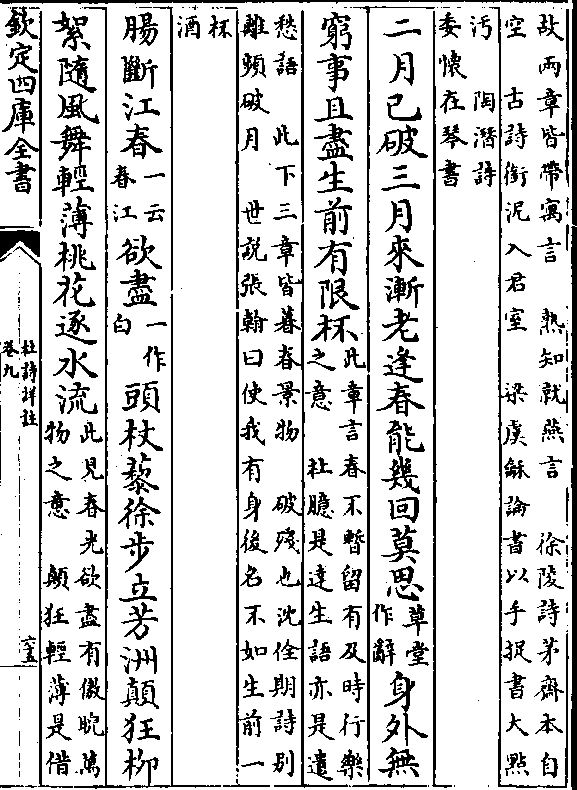 故兩章皆帶寓言 熟知就燕言 徐陵詩茅齋本自
空 古詩銜泥入君室 梁虞龢論書以手捉書大點
汚 陶潛詩
委懷在琴書
二月已破三月來漸老逢春能幾回莫思草堂作辭身外無
窮事且盡生前有限杯此章言春不暫留有及時行樂之意 杜臆是達生語亦是遣
愁語 此下三章皆暮春景物 破殘也沈佺期詩別
離頻破月 世說張翰曰使我有身後名不如生前一
杯
酒
腸斷江春一云春江欲盡一作白頭杖藜徐步立芳洲顛狂柳
絮隨風舞輕薄桃花逐水流此見春光欲盡有傲睨萬物之意 顛狂輕薄是借
欽定四庫全書
杜詩詳註
卷九
六五